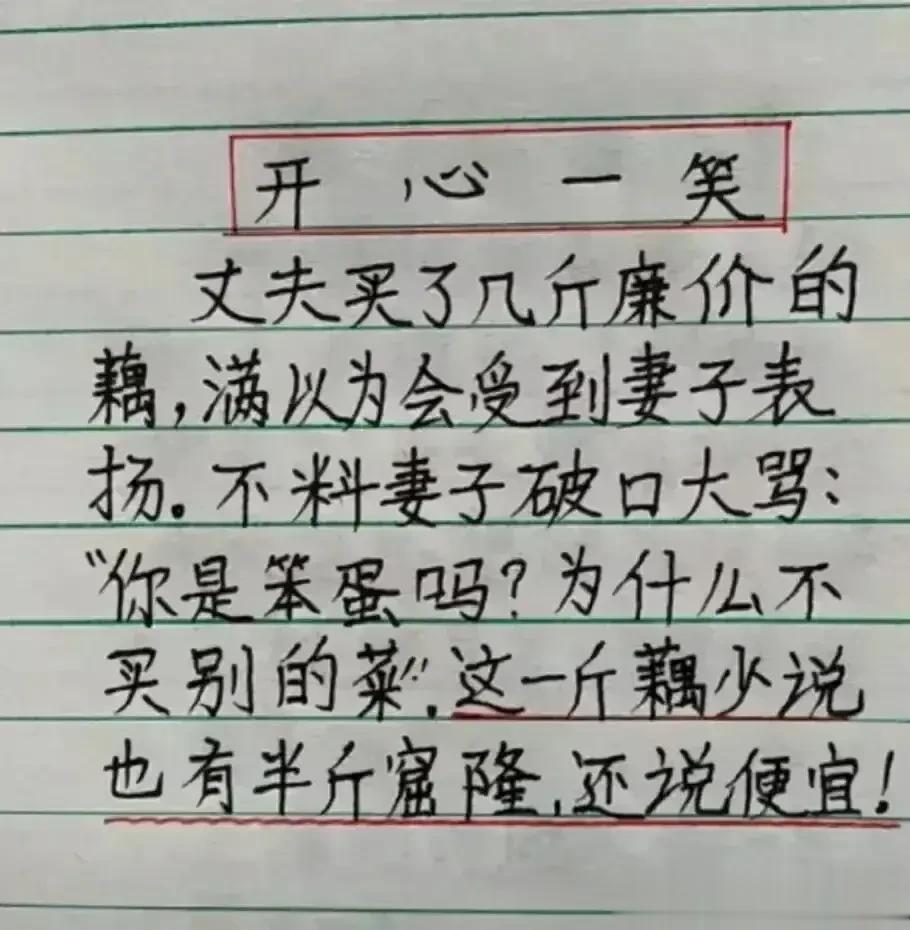 开心一笑
丈夫买了几斤廉价的
藕,满以为会受到妻子表
扬。不料妻子破口大骂:
“你是笨蛋吗?为什么不
买别的菜”.这一斤藕少说
也有半斤窟隆,还说便宜!